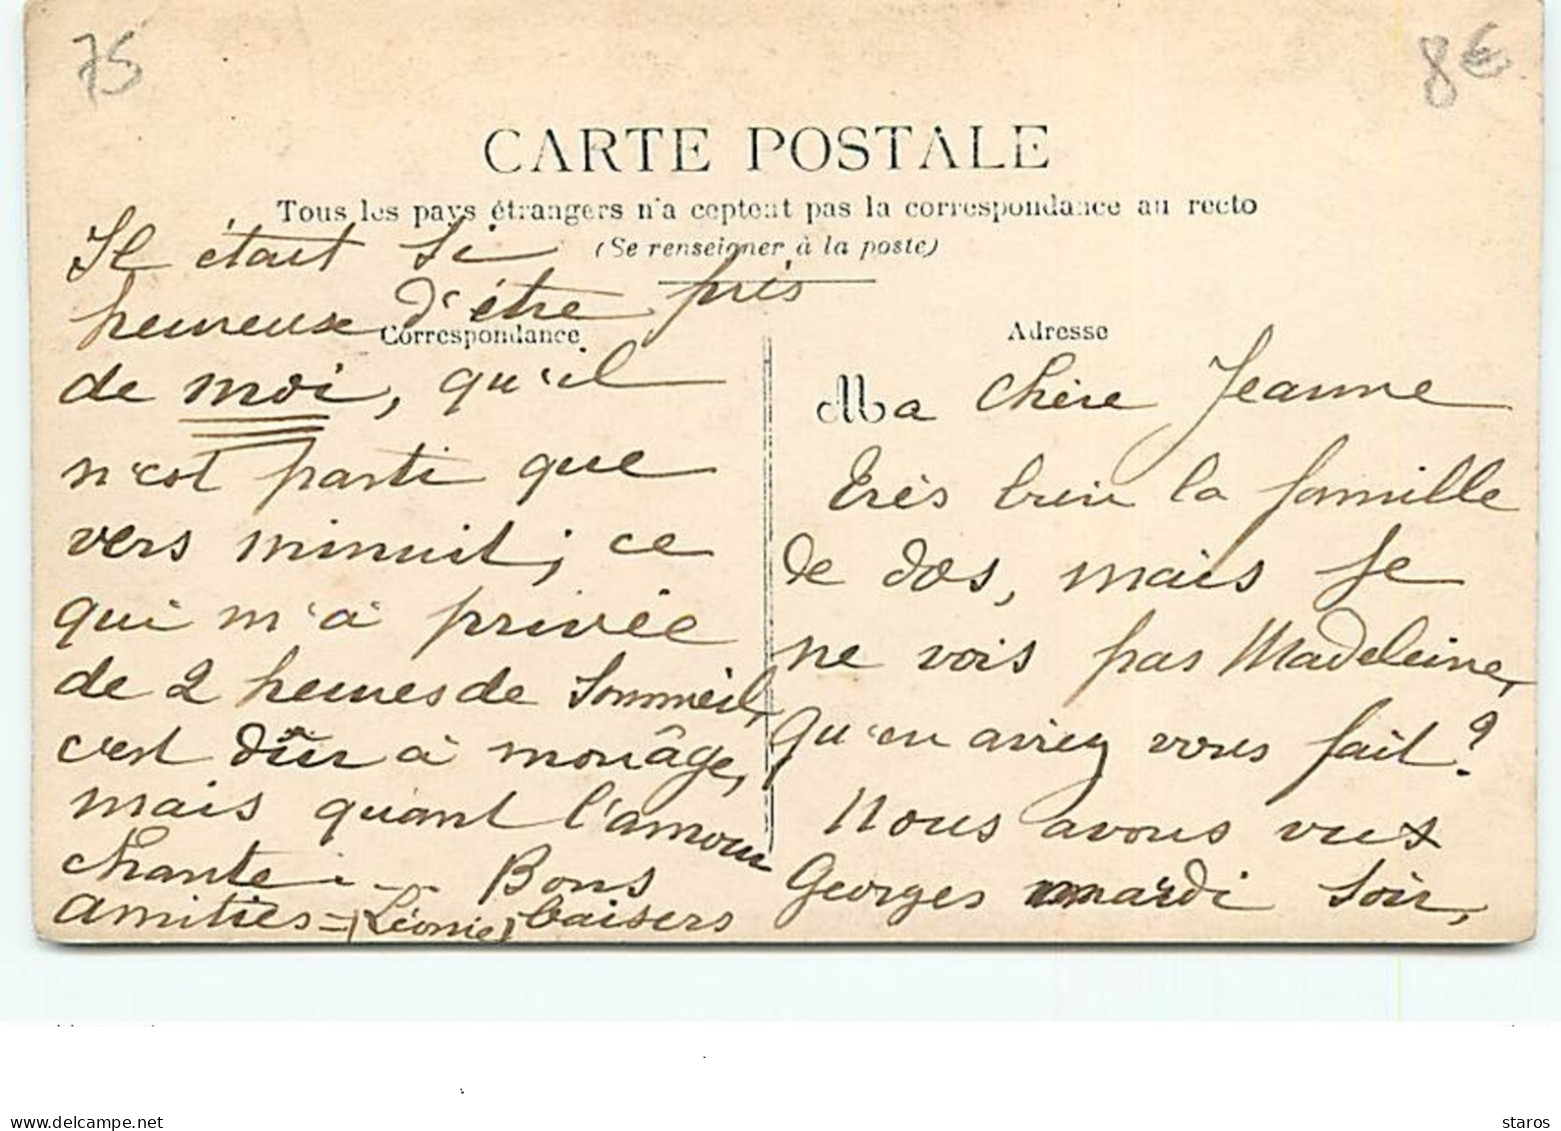 75
8€
CARTE POSTALE
Tous les pays étrangers n'acceptent pas la correspondance au recto
(Se renseigner à la poste)
Correspondance
Adresse
Ma chère Jeanne
Très bien la famille
de dos, mais je
ne vois pas Madeleine,
qu'en aviez vous fait ?
Nous avons vus
Georges mardi soir,
Il était si
heureux d'être près
de moi, qu'il
n'est parti que
vers minuit ; ce
qui m'a privée
de 2 heures de sommeil,
c'est dûr à monâge,
mais quant l'amour
chante - - Bons
Amitiés = (Léonie) baisers
www.delcampe.net
staros